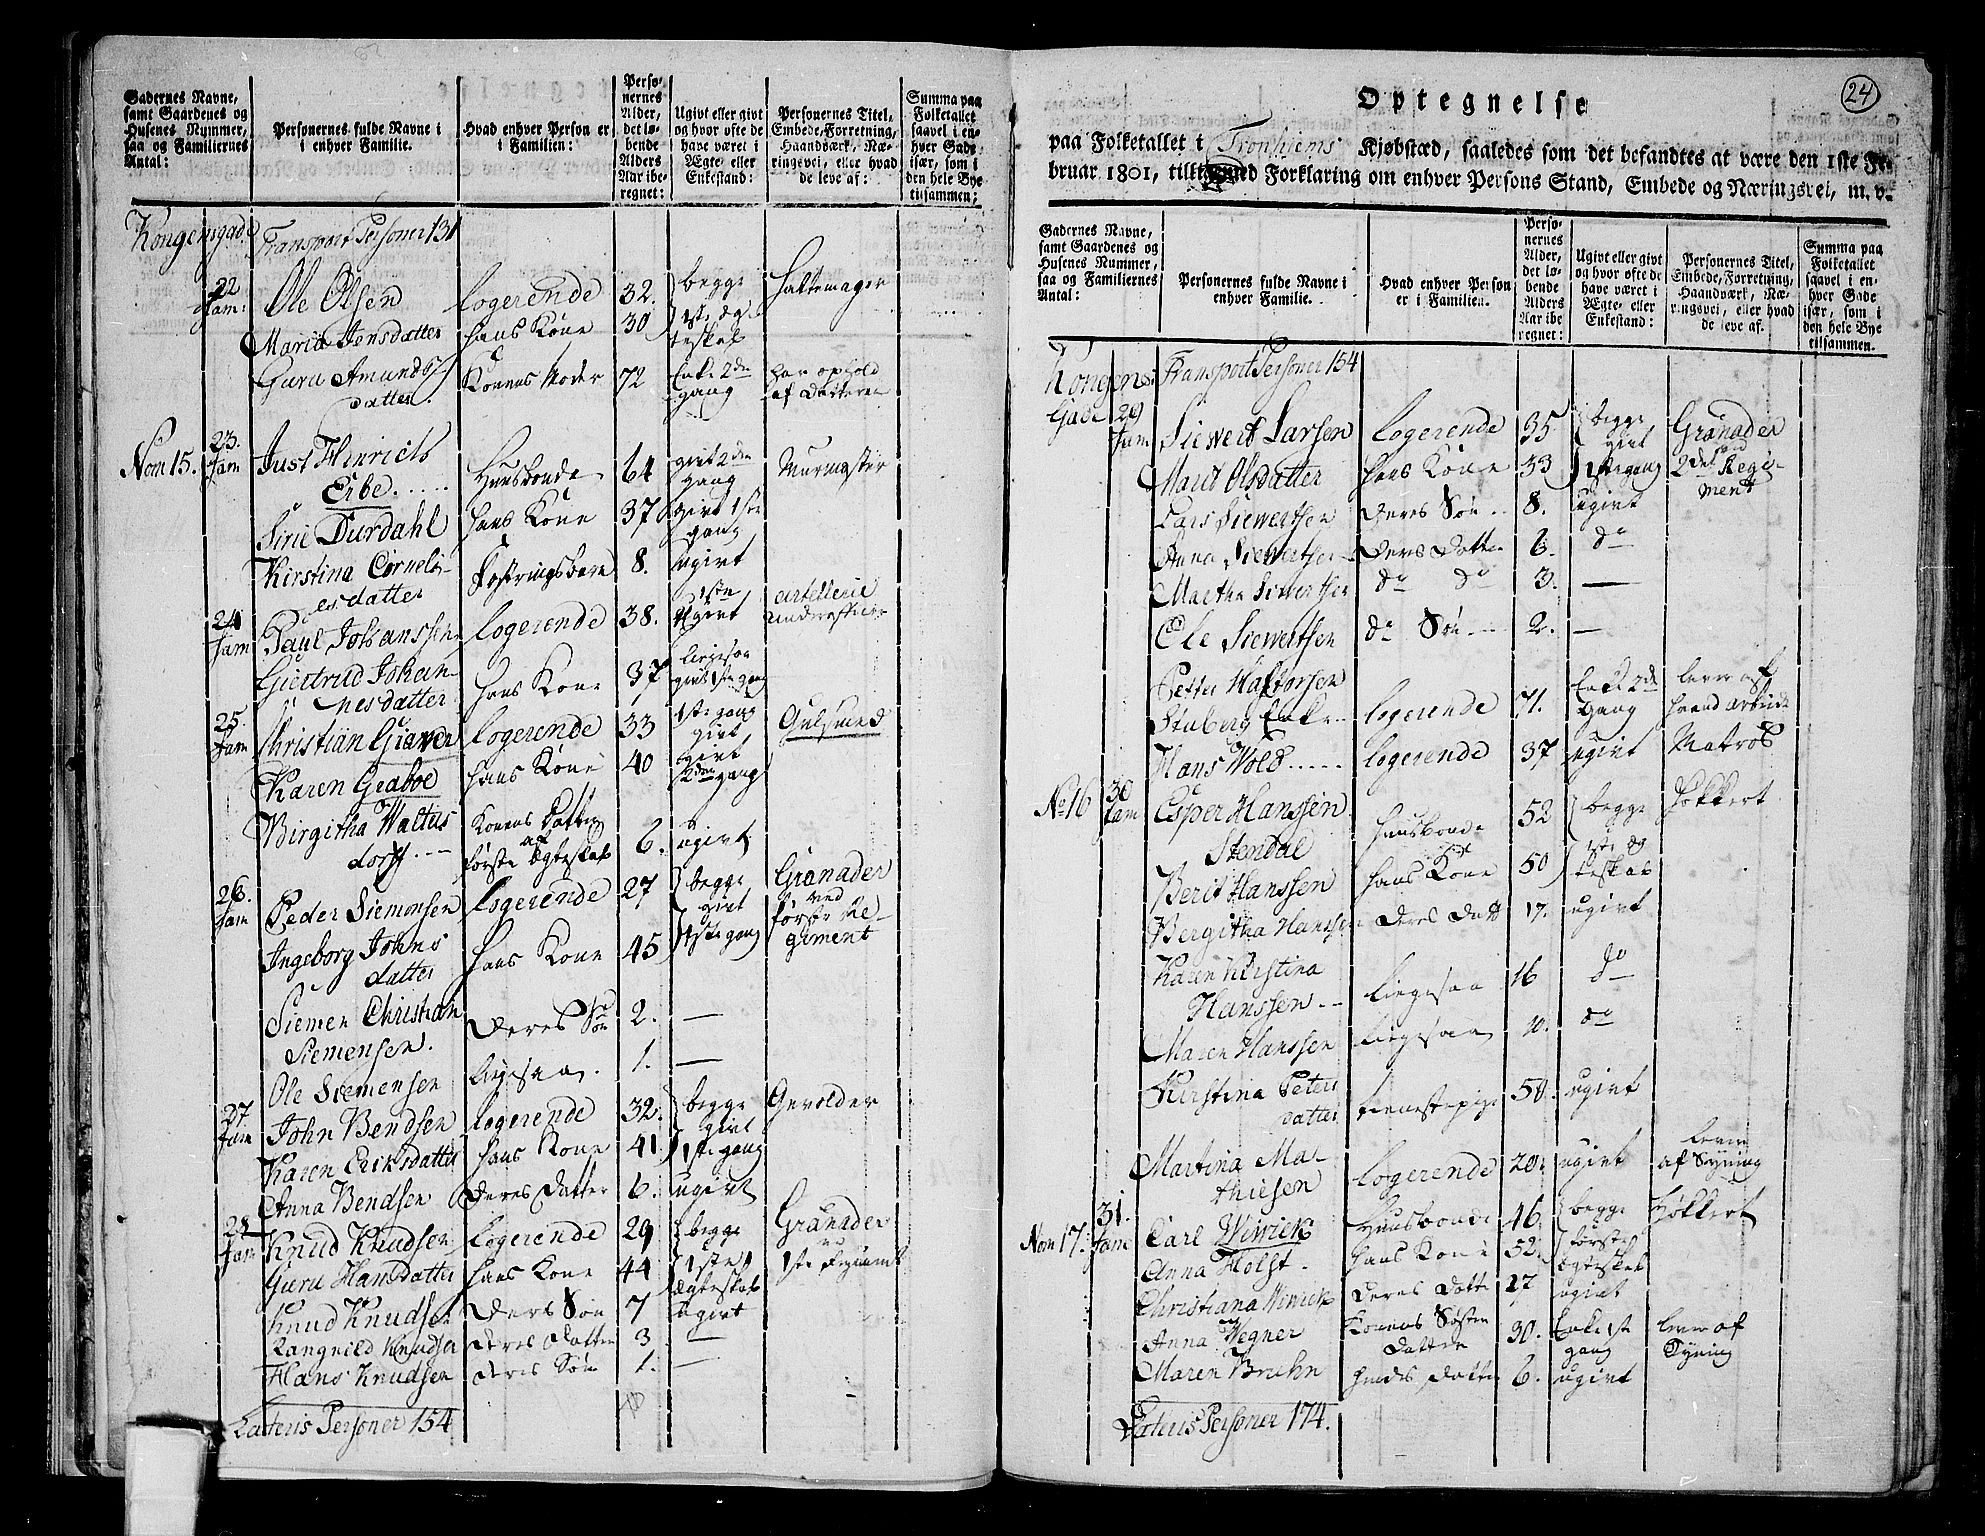 Gadernes Navne,
samt Gaardenes og
Husenes Nummer,
saa og Familiernes
Antal:
Personernes fulde Navne i
enhver Familie.
Hvad enhver Person er
i Familien:
Perso-
nernes
Alder,
det lø-
bende
Alders
Aar ibe-
regnet:
Ugivt eller givt
og hvor ofte de
have været i
Ægte- eller
Enkestand:
Personernes Titel,
Embede, Forretning,
Haandværk, Næ-
ringsvei, eller hvad
de leve af:
Summa paa
Folketallet
saavel i en-
hver Gade
især, som i
den hele Bye
tilsammen:
Kongensgade Transport Personer 131
22 Fam: Ole Olsen logerende 32. begge Hattemager
Maria Jonsdatter hans Kone 30 1ste Æg-
teskab
Guru Amunds- Konens Moder 72 Enke 2den har ophold
datter. gang af Datteren
Nom 15. 23. Fam Just Hinrich Huusbonde 64 givt 2den Murmester
Erbe..... gang
Sirie Durdahl hans Kone 37 givt 1ste
gang
Kirstina Corneli- Fostringsbarn 8. ugivt
esdatter
24 Fam Paul Johanssen logerende 38. 1ste givt artellerie
underofficer
Giertrud Johan- hans Kone 37 ligesom
nesdatter givt 1ste gang
25. Fam Christian Graver logerende 33 1ste gang Gulsmed
givt
Karen Graboe hans Kone 40 givt
2den gang
Birgitha Waltus Konens Datter 6. ugivt
dorff --- af første Ægteskab
26. Fam Peder Siemonsen logerende 27 begge Granader
givt ved
Ingeborg Johns hans Kone 45 1ste gang første Re-
datter giment
Siemen Christian Deres Søn 2. —
Siemensen.
Ole Siemensen ligesaa. 1. —
27 Fam John Bendsen logerende 32. begge Gevolder
givt
Karen Eriksdatter hans Kone 41 1ste gang
Anna Bendsen Deres Datter 6. ugivt
28 Fam Knud Knudsen logerende 29 begge Granader
Guru Hansdatter hans Kone 44 1ste 1ste Regiment
Ægteskab
Knud Knudsen Deres Søn 7 ugivt
Rangnild Knudsen Deres Datter 3 —
Hans Knudsen Deres Søn 1. —
Lateris Personer 154
24
Optegnelse
paa Folketallet i Tronhiems Kjøbstæd, saaledes som det befandtes at være den 1ste Fe-
bruar 1801, tillige med Forklaring om enhver Persons Stand, Embede og Næringsvei, m. v.
Gadernes Navne,
samt Gaardenes og
Husenes Nummer,
saa og Familiernes
Antal:
Personernes fulde Navne i
enhver Familie.
Hvad enhver Person
er i Familien:
Perso-
nernes
Alder,
det lø-
bende
Alders
Aar ibe-
regnet:
Ugivt eller givt
og hvor ofte de
have været i
Ægte- eller
Enkestand:
Personernes Titel,
Embede, Forretning,
Haandværk, Næ-
ringsvei, eller hvad
de leve af.
Summa paa
Folketallet
saavel i en-
hver Gade
især, som i
den hele Bye
tilsammen.
Kongens Transport Personer 154
Gade 29 Fam Siewert Larsen logerende 35 begge Granader
givt ved
Marit Olsdatter hans Kone 33 1ste gang 2det Regi-
ment
Lars Siewertsen Deres Søn -- 8. ugivt
Anna Siewertsen Deres Datter 6. do
Martha Siwertsen do do 3. —
Ole Siewertsen do Søn --- 2. —
Petter Halforsen
Stuberg Enke -- logerende 71. Enke 2den gang lever af haand arbeide
Hans Wold...... logerende 37 ugivt Matros
No 16 30 Fam Esper Hanssen Huusbonde 52 begge Høkkert
Stendal 1ste Æg-
Berit Hanssen hans Kone 50 teskab
Bergitha Hanssen Deres Datt 17. ugivt
Karen Kirstina ligesaa 16 do
Hanssen --
Maren Hanssen ligesaa 10. do
Kirstina Peters tienestepige 50. ugivt
datter
Martina Ma- logerende 20. ugivt lever
thiesen af Syning
Nom 17. 31. Fam Carl Winick Huusbonde 46 begge Høkkert
Anna Holst. hans Kone 52. første
Ægteskab
Christiana Winick Deres Datte 17 ugivt
Anna Wegner Konens Søster 30. Enke 1ste lever af
Datter gang Syning
Maren Bruhn hendes Datter 6. ugivt
Lateris Personer 174.